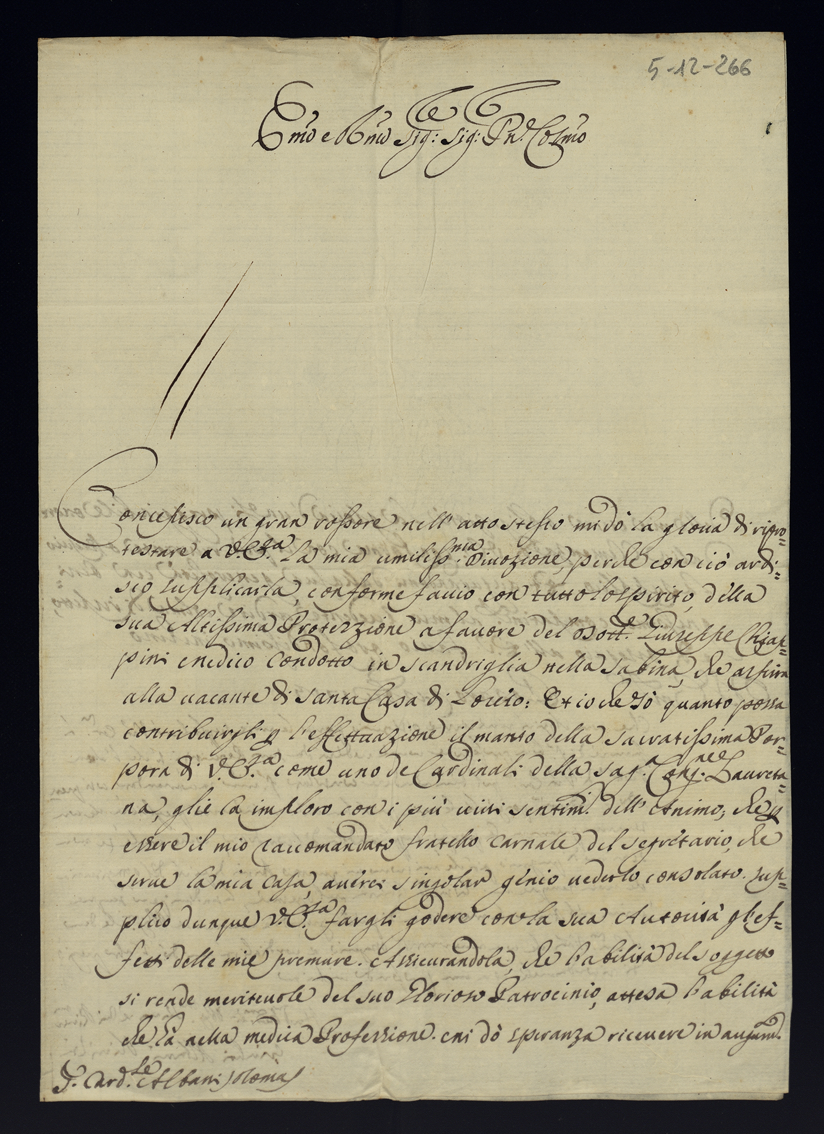 5-12-266
Em̃o e Rm̃o Sig:re Sig: Pn̄e Col̃mo
Concepisco un gran rossore nell'atto stesso mi dò la gloria di ripro=
testare a V.E.za la mia umiliss.ma divozione, perche con ciò ardi=
sco supplicarla, conforme faccio con tutto lo spirito, della
sua Altissima Protezzione a favore del Dott.e Giuseppe Chiap=
pini medico condotto in Scandriglia nella Sabina, che aspira
alla vacante di Santa Casa di Loreto: Et io che sò quanto possa
contribuirgli p l'effettuazione il manto della sacratissima Por=
pora di V.E.za come uno de Cardinali della sag.a Cong.ne Laureta=
na, glie la imploro con i più vivi sentim.ti dell'Animo; che p
essere il mio raccomandato fratello carnale del segretario, che
serve la mia casa, averei singolar genio vederlo consolato. Sup=
plico dunque V.E.za fargli godere con la sua Autorità gl'ef=
fetti delle mie premure. Assicurandola, che l'abilità del soggetto
si rende meritevole del suo Glorioso Patrocinio, attesa l'abilità
che hà nella medica Professione. mi dò speranza ricevere in augum.to
S. Card.le Albani Roma